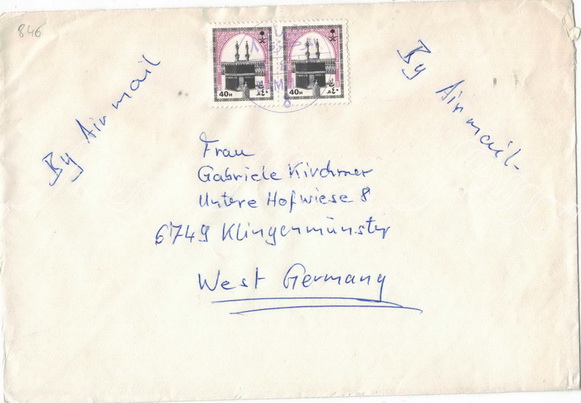 846
By Air mail
By Air mail
40H
٤٠
40H
٤٠
Frau
Gabriele Kirchmer
Untere Hofwiese 8
6749 Klingenmünster
West Germany